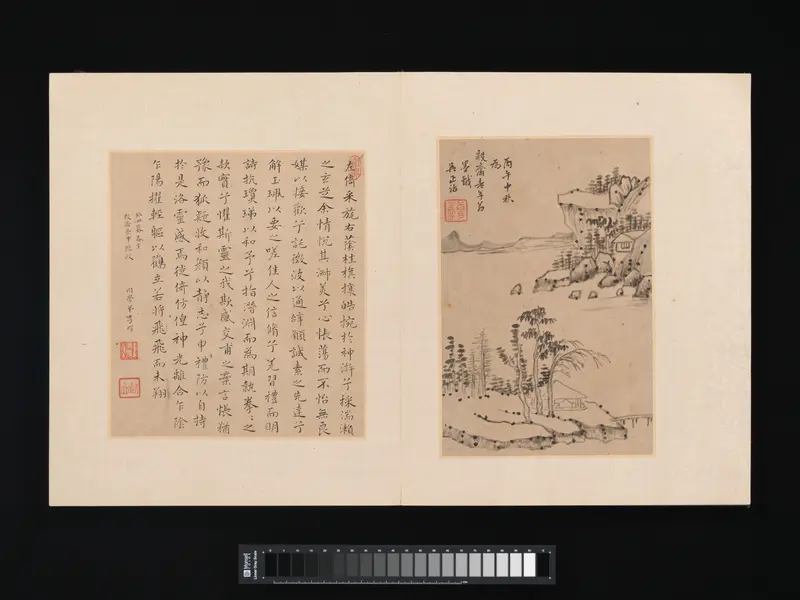 丙午中秋
為
毅齋老年翁
左倚采旄右蔭桂旗攘皓捥於神滸兮採湍瀨
之玄芝余情悅其淑美兮心悵蕩而不怡無良
媒以接歡兮託微波以通辭願誠素之先達兮
解玉珮以要之嗟佳人之信脩兮羌習禮而明
詩抗瓊珶以和予兮指潛淵而為期執拳〻之
款實兮懼斯靈之我欺感交甫之棄言悵猶
豫而狐疑收和顏以靜志兮申禮防以自持
於是洛靈感焉徙倚仿偟神光離合乍陰
乍陽擢輕軀以鶴立若將飛飛而未翔